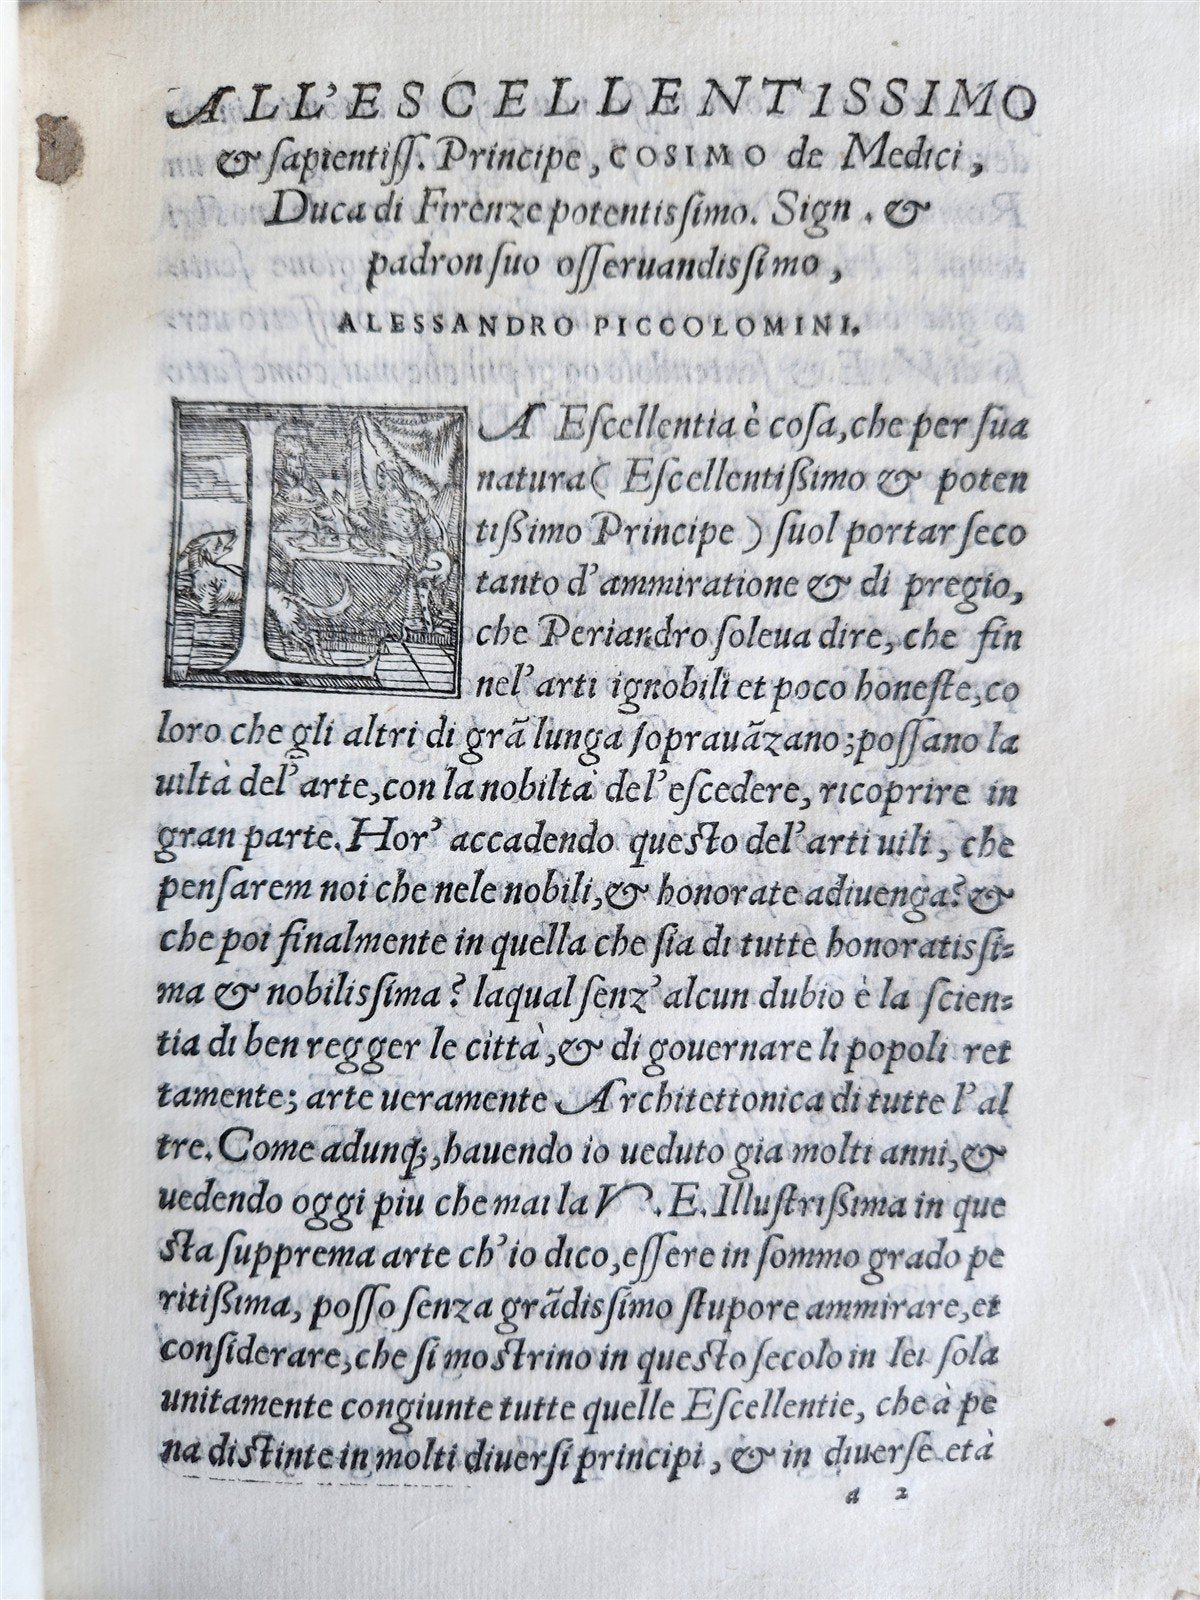 ALL'ESCELLENTISSIMO
& sapientiſſ. Principe, COSIMO de Medici,
Duca di Firenze potentisſimo. Sign. &
padron ſuo oſſeruandisſimo,
ALESSANDRO PICCOLOMINI.
LA Eſcellentia è coſa, che per ſua
natura ( Eſcellentißimo & poten
tißimo Principe ) ſuol portar ſeco
tanto d'ammiratione & di pregio,
che Periandro ſoleua dire, che fin
nel'arti ignobili et poco honeſte, co
loro che gli altri di grã lunga ſoprauãzano; poſſano la
uiltà del'arte, con la nobiltà del'eſcedere, ricoprire in
gran parte. Hor' accadendo queſto del'arti uili, che
penſarem noi che nele nobili, & honorate adiuenga? &
che poi finalmente in quella che ſia di tutte honoratisſi=
ma & nobilisſima? laqual ſenz'alcun dubio è la ſcien=
tia di ben regger le città, & di gouernare li popoli ret
tamente; arte ueramente Architettonica di tutte l'al
tre. Come adunq;, hauendo io ueduto gia molti anni, &
uedendo oggi piu che mai la V. E. Illuſtrißima in que
ſta ſupprema arte ch'io dico, eſſere in ſommo grado pe
ritißima, poſſo ſenza grãdisſimo ſtupore ammirare, et
conſiderare, che ſi moſtrino in queſto ſecolo in lei ſola
unitamente congiunte tutte quelle Eſcellentie, che à pe
na diſtinte in molti diuerſi principi, & in diuerſe età
a 2